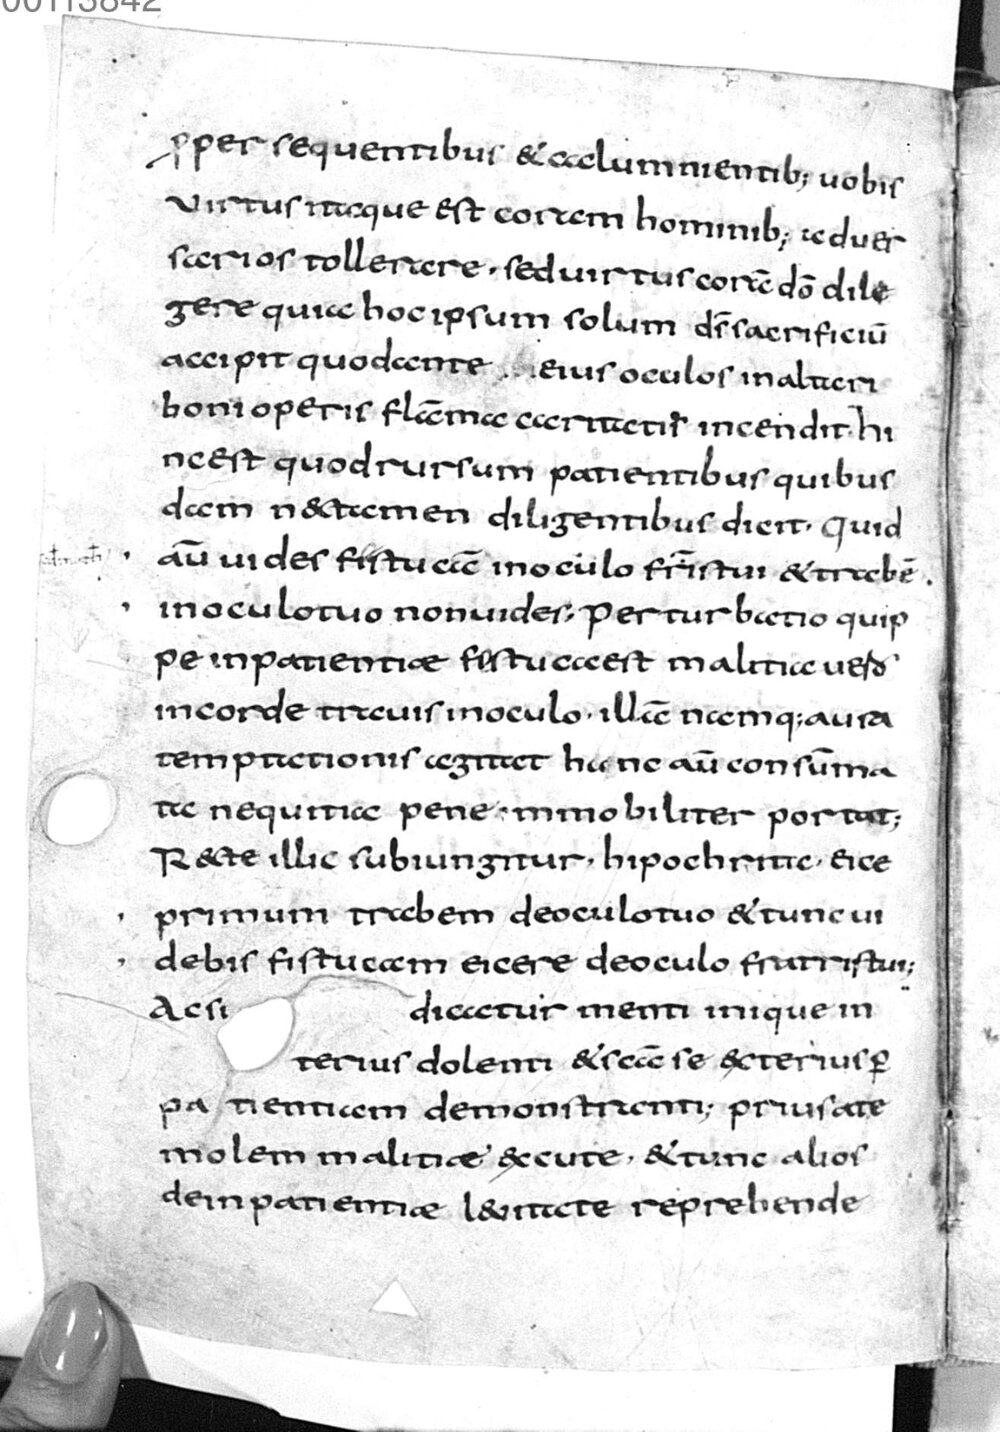 00113842
ꝓper sequentibus & calumnientib; uobis
Virtus itaque est coram hominib; aduer
sarios tollerare · sed uirtus corā dō dile
gere quia hoc ipsum solum ds̄ sacrificiū
accipit quod ante eius oculos in altari
boni operis flāma caritatis incendit · hi
nc est quod rursum patientibus quibus
dam n& tamen diligentibus dicit · Quid
aū uides fistucā in oculo fr̄is tui & trabē
in oculo tuo non uides; Perturbatio quip
pe inpatientiae festuca est malitia uero
in corde trauis in oculo · illā namq; aura
temptationis agitat hanc aū consūma
ta nequitia pene inmobiliter portat;
R&te illic subiungitur · hipochrita · eice
primum trabem de oculo tuo & tunc ui
debis fistucam eicere de oculo fratris tui;
Ac si dicatur menti inique in
terius dolenti & scā se exterius ꝑ
pa tientiam demonstranti; prius a te
molem malitiae excute · & tunc alios
de inpatientiae leuitate reprehende